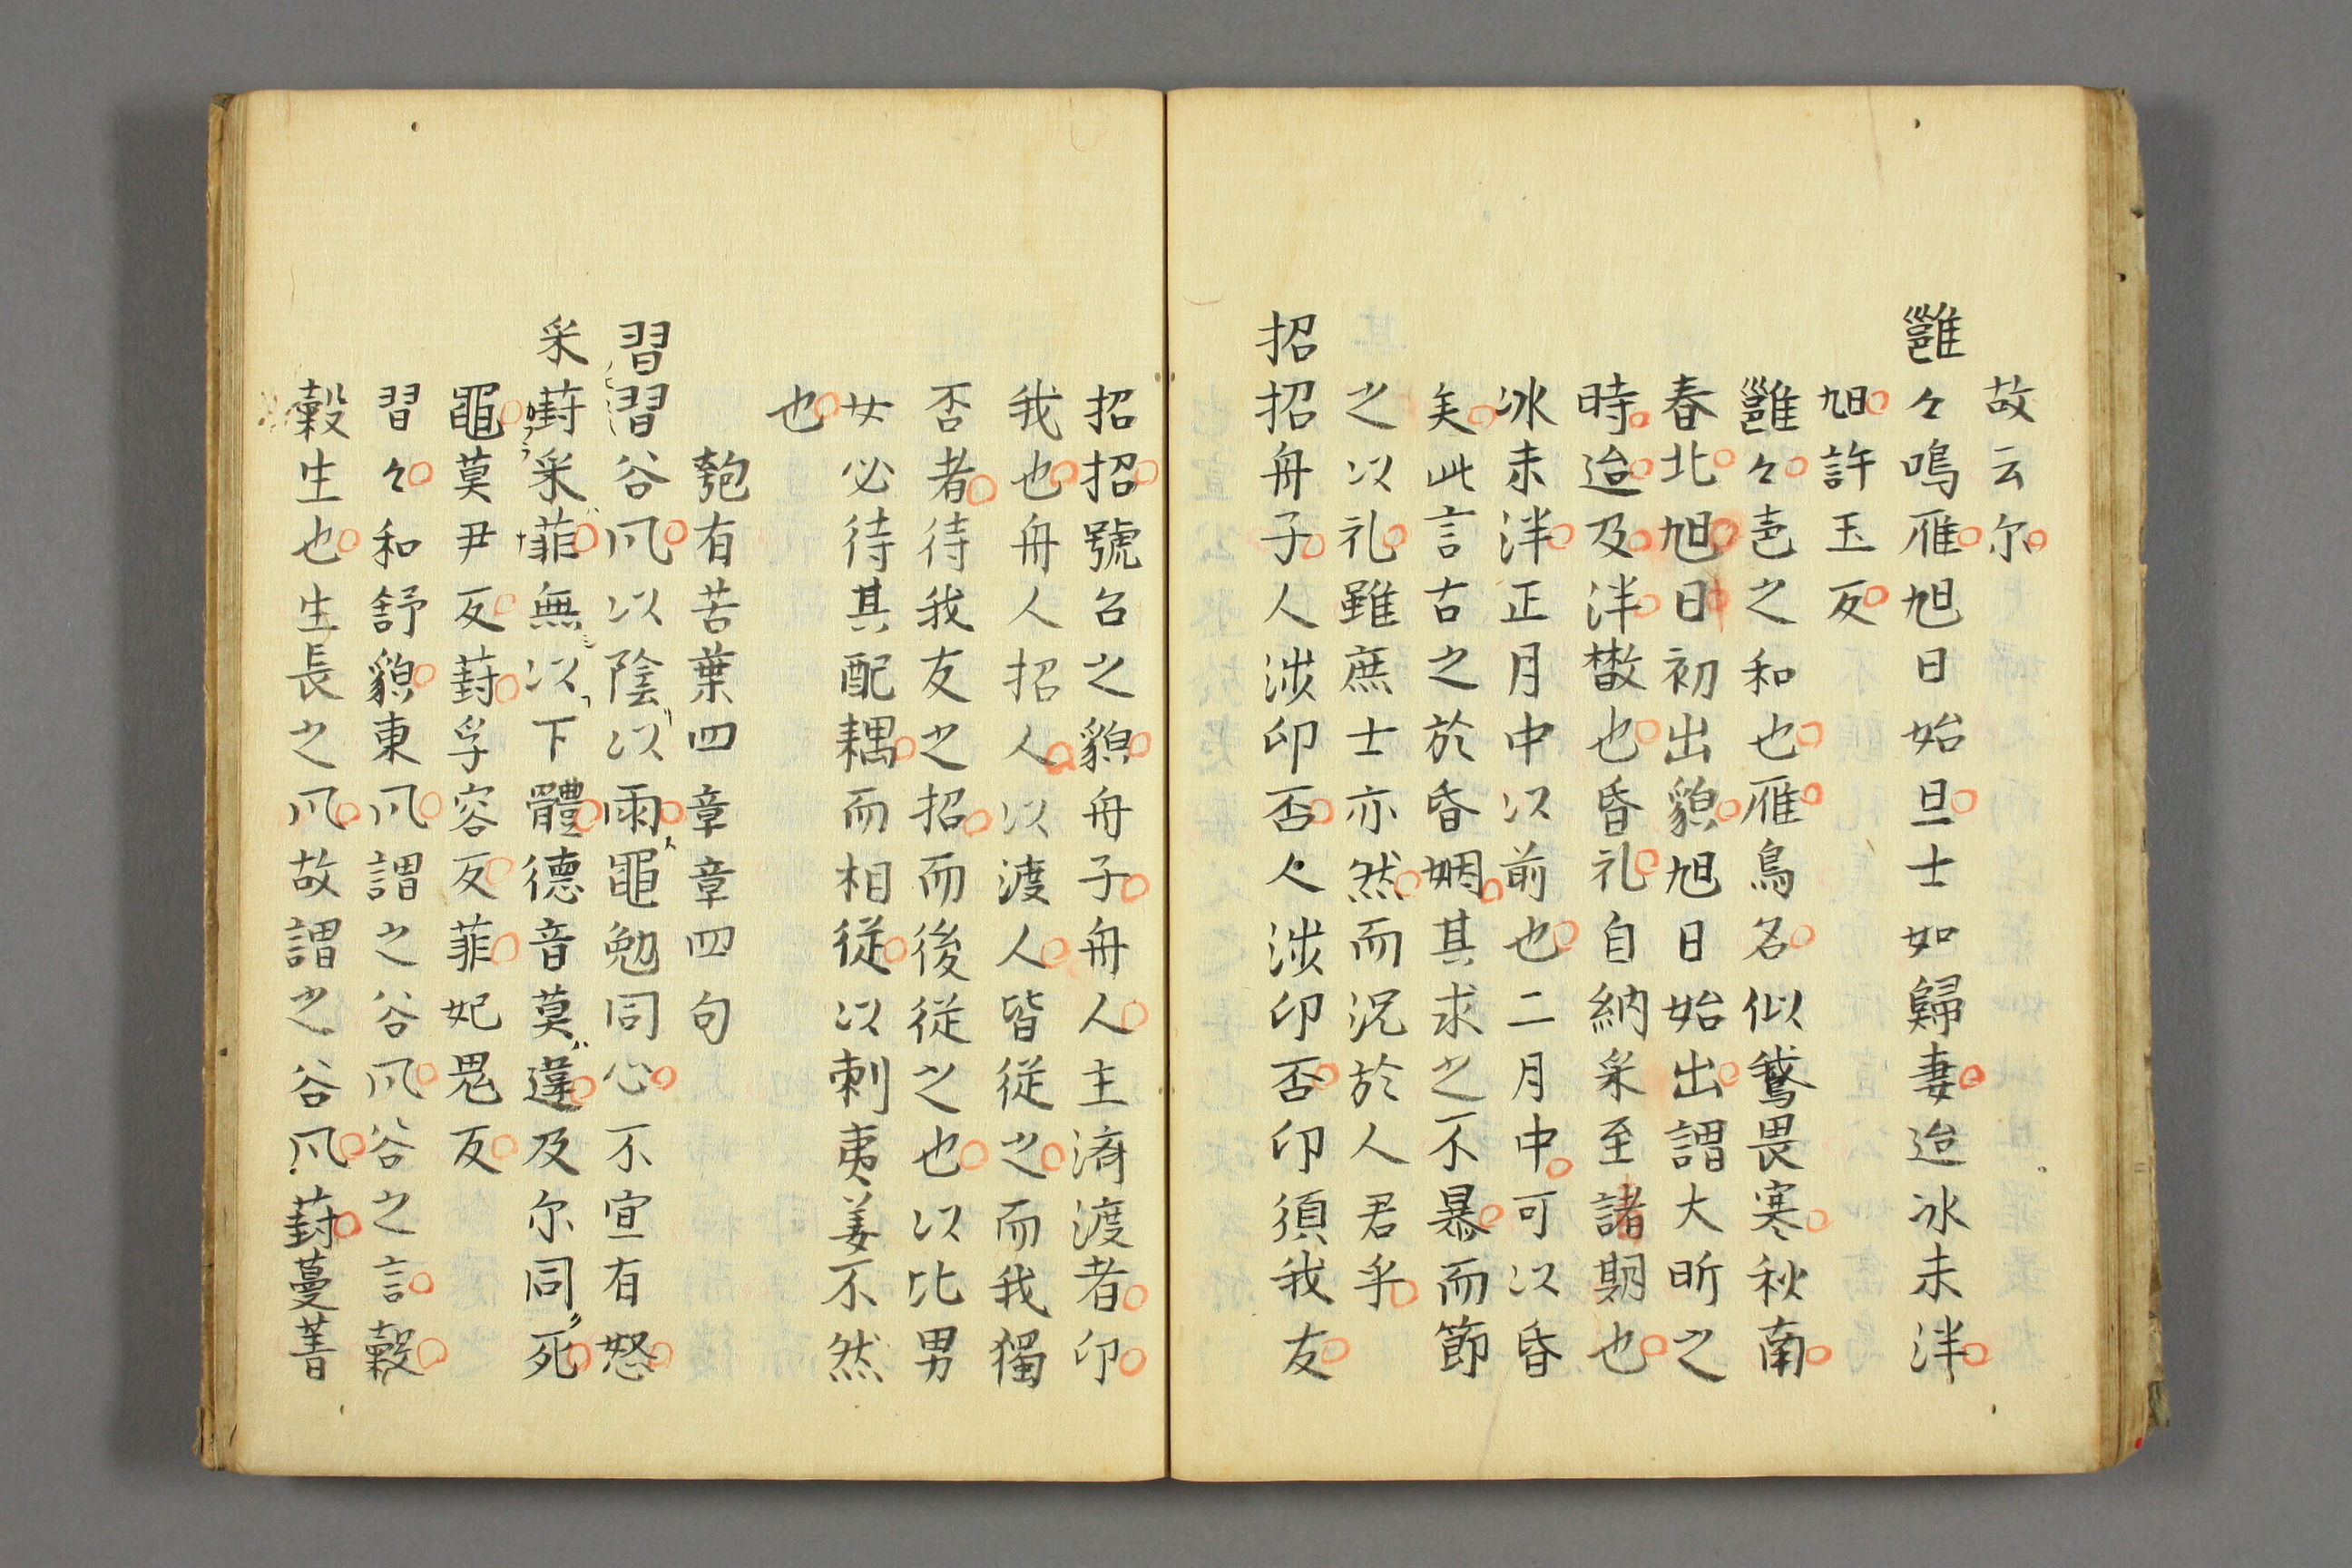 故云尔
雝々鳴雁旭日始旦士如歸妻迨冰未泮
旭許玉反
雝々声之和也雁鳥名似鵞畏寒秋南
春北旭日初出貌旭日始出謂大昕之
時迨及泮散也昏礼自納采至請期也
冰未泮正月中以前也二月中可以昏
矣此言古之於昏姻其求之不暴而節
之以礼雖庶士亦然而況於人君乎
招招舟子人涉卬否人涉卬否卬須我友
招招號召之貌舟子舟人主済渡者卬
我也舟人招人以渡人皆従之而我獨
否者待我友之招而後従之也以比男
女必待其配耦而相従以刺夷姜不然
也
匏有苦葉四章章四句
習習谷风以陰以雨黽勉同心不宜有怒
采葑采菲無以下體德音莫違及尔同死
黽莫尹反葑孚容反菲妃鬼反
習々和舒貌東风謂之谷风谷之言穀
穀生也生長之风故謂之谷风葑蔓菁